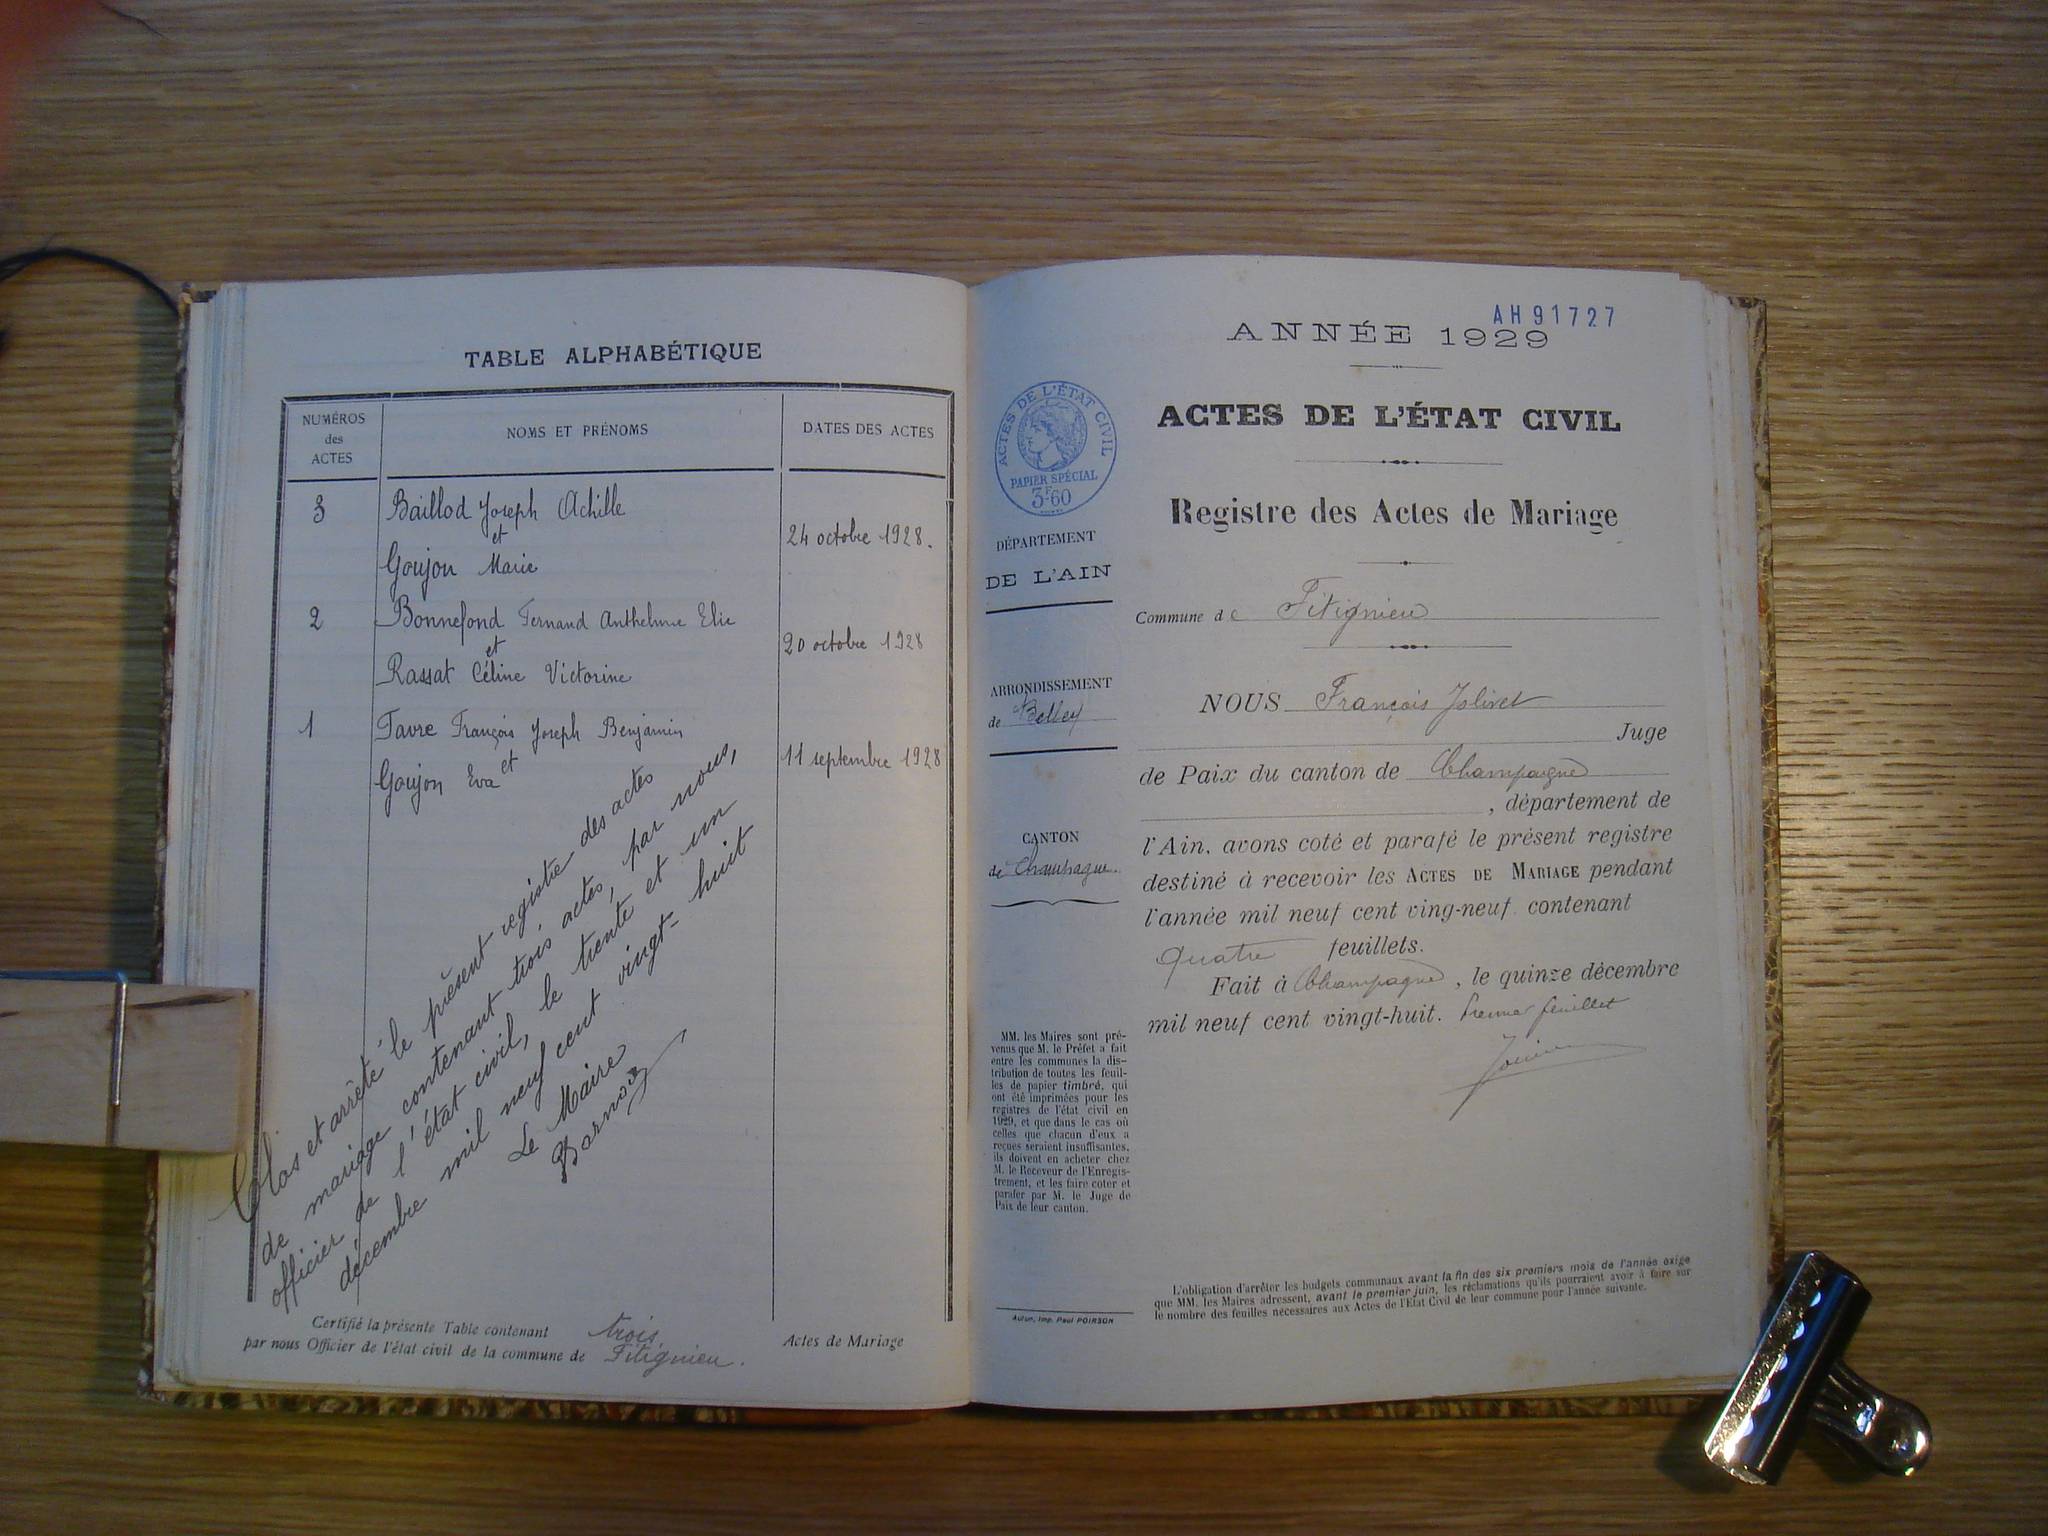 TABLE ALPHABÉTIQUE
NUMÉROS
des
ACTES
NOMS ET PRÉNOMS
DATES DES ACTES
3
Baillod Joseph Achille
et
Goujon Marie
24 octobre 1928.
2
Bonnefond Fernand Anthelme Elie
et
Rassat Céline Victorine
20 octobre 1928
1
Favre François Joseph Benjamin
et
Goujon Eva
11 septembre 1928
Clos et arrêté le présent registre des actes
de mariage contenant trois actes, par nous,
officier de l'état civil, le trente et un
décembre mil neuf cent vingt-huit
Le Maire
Certifié la présente Table contenant trois Actes de Mariage
par nous Officier de l'état civil de la commune de Fitignieu.
AH91727
ANNÉE 1929
ACTES DE L'ÉTAT CIVIL
Registre des Actes de Mariage
ACTES DE L'ÉTAT CIVIL
PAPIER SPÉCIAL
3F60
DÉPARTEMENT
DE L'AIN
ARRONDISSEMENT
de Belley
CANTON
de Champagne.
MM. les Maires sont pré-
venus que M. le Préfet a fait
entre les communes la dis-
tribution de toutes les feuil-
les de papier timbré, qui
ont été imprimées pour les
registres de l'état civil en
1929, et que dans le cas où
celles que chacun d'eux a
reçues seraient insuffisantes,
ils doivent en acheter chez
M. le Receveur de l'Enregis-
trement, et les faire coter et
parafer par M. le Juge de
Paix de leur canton.
Autun, Imp. Paul POIRSON
Commune de Fitignieu
NOUS François Jolivet
Juge
de Paix du canton de Champagne
, département de
l'Ain, avons coté et parafé le présent registre
destiné à recevoir les ACTES DE MARIAGE pendant
l'année mil neuf cent ving-neuf contenant
quatre feuillets.
Fait à Champagne, le quinze décembre
mil neuf cent vingt-huit. Premier feuillet
L'obligation d'arrêter les budgets communaux avant la fin des six premiers mois de l'année exige
que MM. les Maires adressent, avant le premier juin, les réclamations qu'ils pourraient avoir à faire sur
le nombre des feuilles nécessaires aux Actes de l'Etat Civil de leur commune pour l'année suivante.